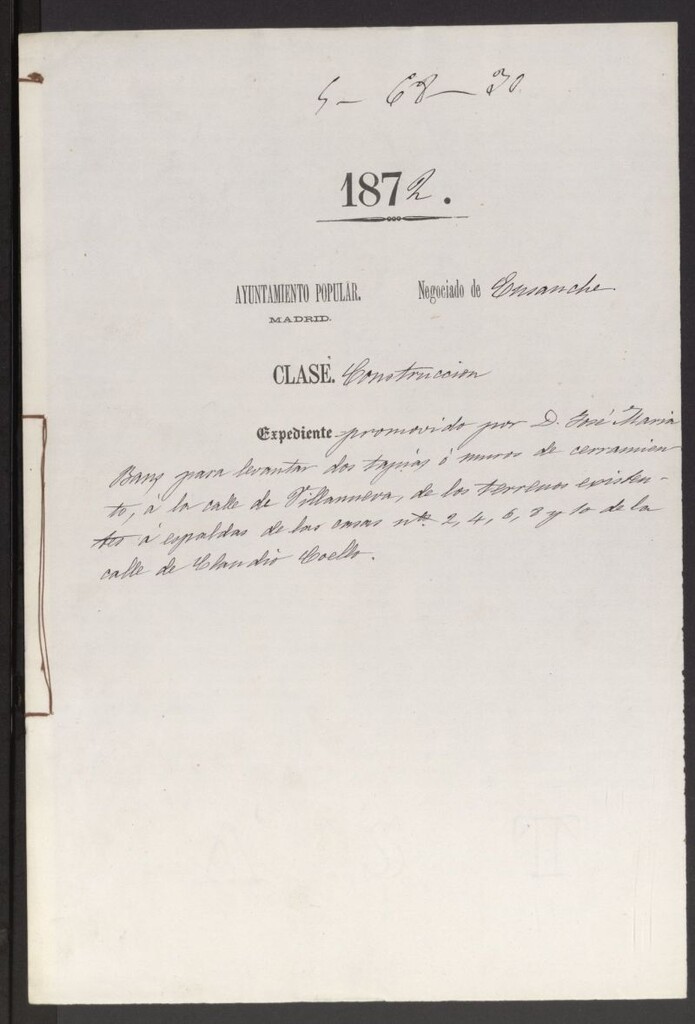 5 - 68 - 30
1872.
AYUNTAMIENTO POPULAR. Negociado de Ensanche
MADRID.
CLASE. Construccion
Expediente promovido por D. José Maria
para levantar dos tapias ó muros de cerramien
to, á la calle de Villanueva, de los terrenos existen-
tes á espaldas de las casas nos. 2, 4, 6, 8 y 10 de la
calle de Claudio Coello.